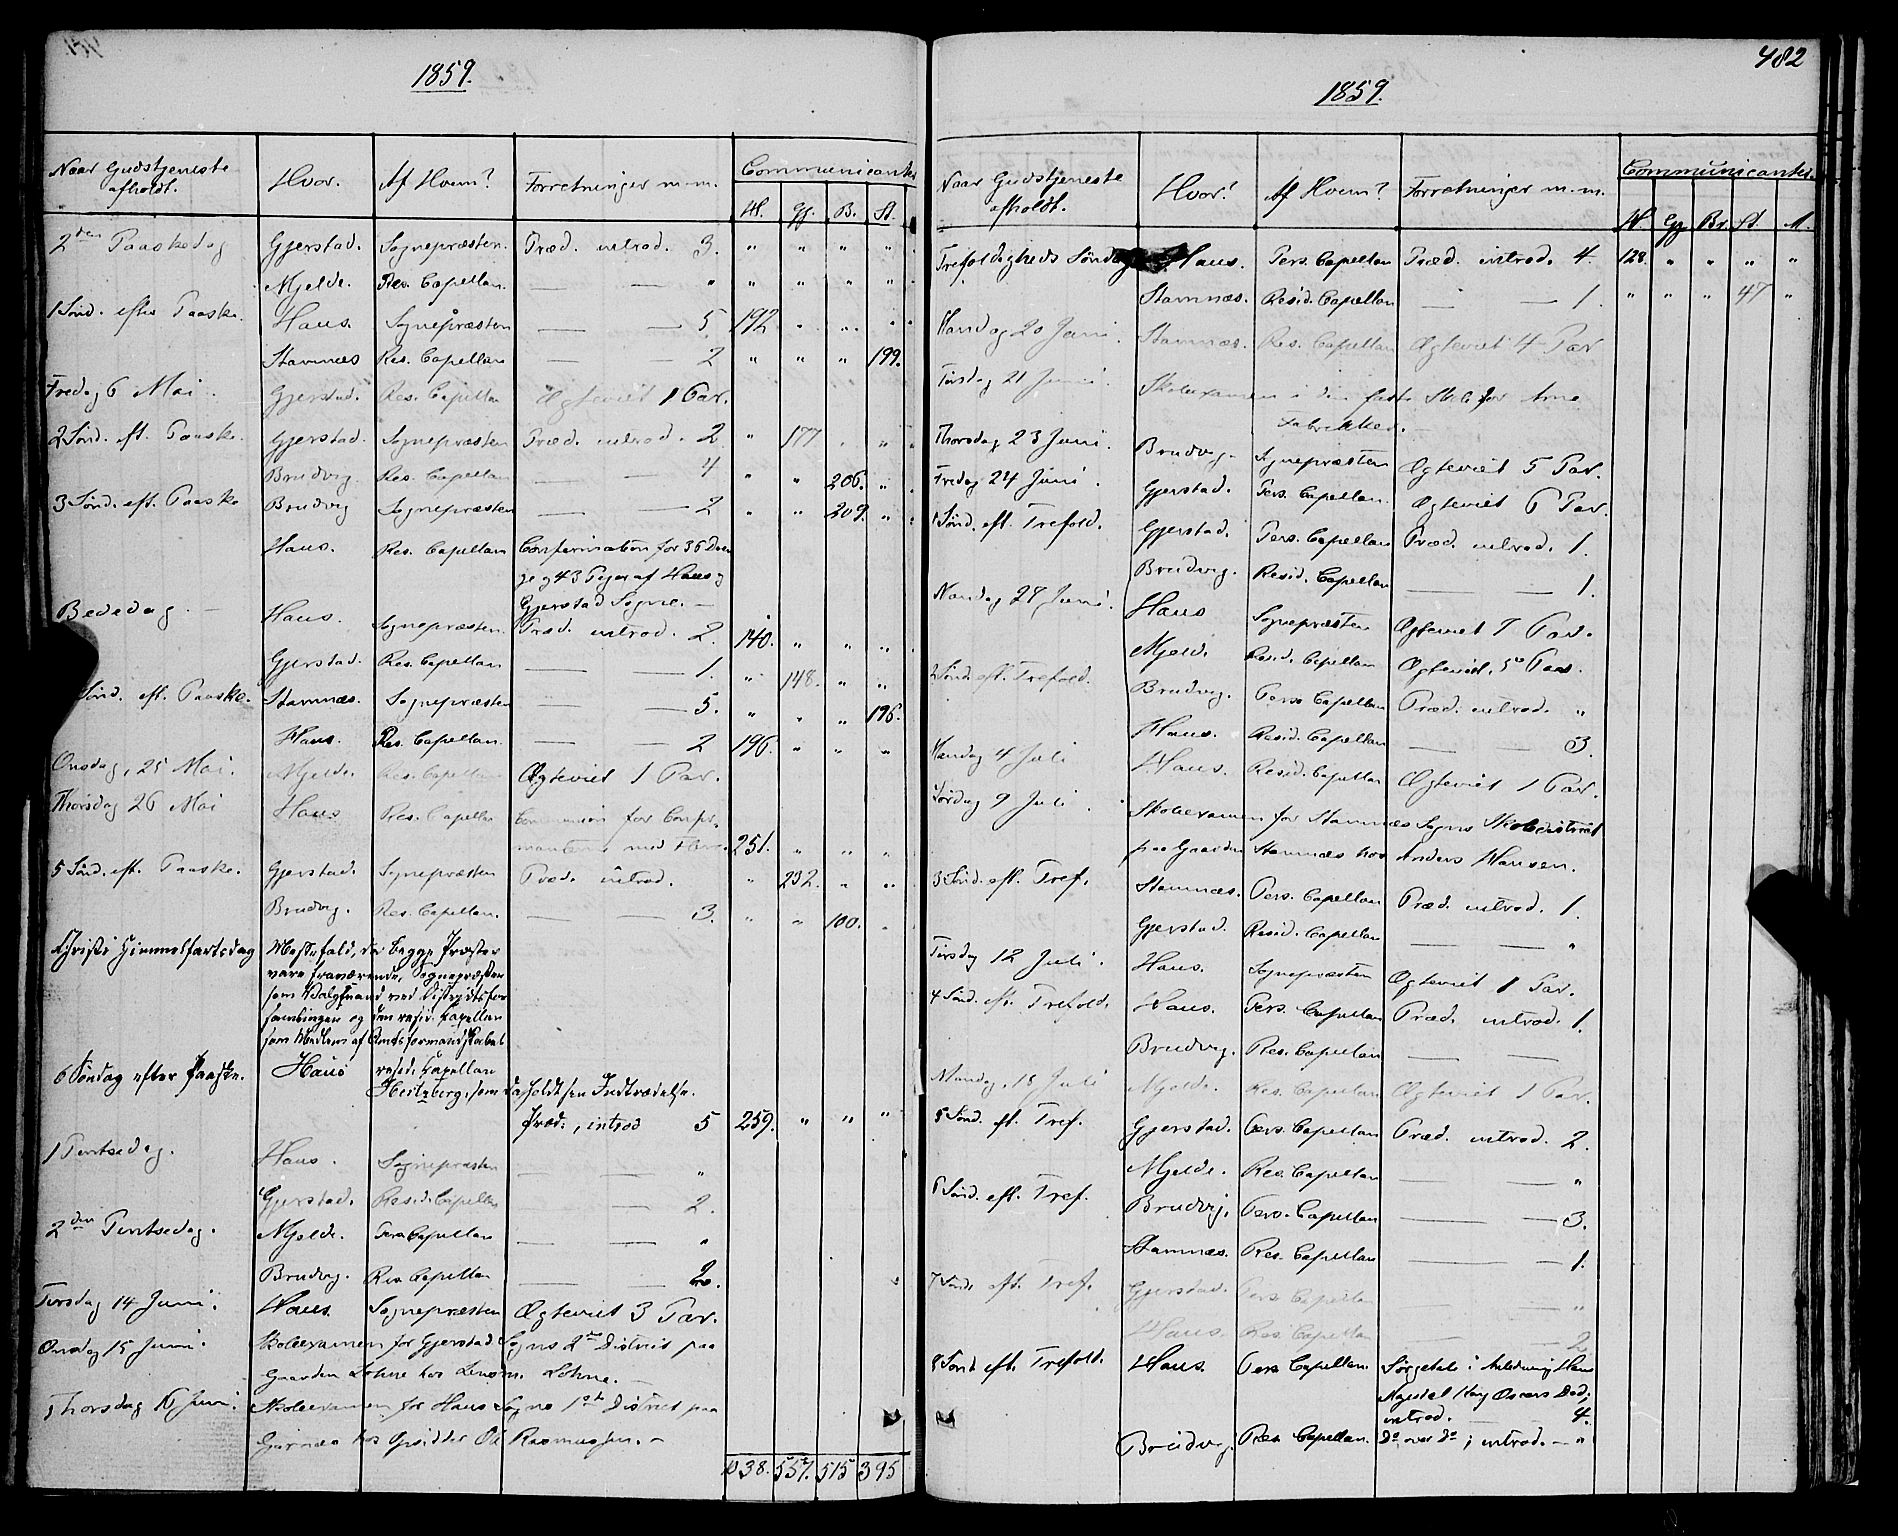 1859.
Naar Gudstjeneste afholdt. Hvor. Af Hvem? Forretninger m.m. Communicanter
H. Gj. B. St.
2den Paaskedag Gjerstad. Sognepræsten. Præd. introd. 3. " " " "
Mjelde. Res. Capellan. — — " " " " "
1 Sønd. efter Paaske. Haus. Sognepræsten — — 5 192 " " "
Stamnæs Res. Capellan — — 2 " " " 199.
Fredag 6 Mai. Gjerstad. Res. Capellan Ægteviet 1 Par.
2 Sønd. eft. Paaske. Gjerstad. Sognepræsten Præd. introd. 2 " 177 " "
Brudvig. Res. Capellan — — 4 " " 206. "
3 Sønd. eft. Paaske Brudvig Sognepræsten — — 2 " " 209. "
Haus. Res. Capellan Confirmation for 36 Dren
ge og 43 Piger af Haus og
Gjerstad Sogne. —
Bededag. — Haus. Sognepræsten. Præd. introd. 2. 140. " " "
Gjerstad. Res. Capellan — — 1. " 148. " "
Sønd. eft. Paaske. Stamnæs. Sognepræsten — — 5. " " " 196.
Haus. Res. Capellan. — — 2 196. " " "
Onsdag, 25 Mai. Mjelde. Res. Capellan Ægteviet 1 Par.
Thorsdag 26 Mai Haus Res. Capellan Communion for Confir-
manterne med Flere 251. " " "
5 Sønd. eft. Paaske. Gjerstad. Sognepræsten Præd. introd. " 232. " "
Brudvig. Res. Capellan. — — 3. " " 100. "
Christi Himmelfartsdag Messefald, da begge Præster
vare fraværende, Sognepræsten
som Valgmand ved Districtsfor
samlingen og den resid. Capellan
som Medlem af Amtsformandskabet
6 Søndag efter Paaske. Haus resid. Capellan
Hertzberg, som da holdt sin Indtrædelse.
Præd., introd 5 259. " " "
1 Pintsedag. Haus. Sognepræsten — — "
Gjerstad. Resid. Capellan — — 2.
2den Pintsedag. Mjelde. Pers Capellan — — "
Brudvig. Res. Capellan — — 2.
Tirsdag 14 Juni. Haus. Sognepræsten Ægteviet 3 Par.
Onsdag 15 Juni. Skoleexamen for Gjerstad Sogns 2det District paa
Gaarden Lohne hos Lensm. Lohne. —
Thorsdag 16 Juni. Skoleexamen for Haus Sogns 1ste District paa
Garnæs hos Opsidder Ole Rasmussen. —
1038. 557. 515 395
482
1859.
Naar Gudstjeneste afholdt. Hvor? Af Hvem? Forretninger m.m. Communicanter.
H. Gj Br. St. M.
Trefoldigheds Søndag Haus. Pers. Capellan Præd. introd. 4. 128. " " " "
Stamnæs. Resid. Capellan — — 1. " " " 47 "
Mandag 20 Juni. Stamnæs. Res. Capellan Ægteviet 4 Par
Tirsdag 21 Juni. Skoleexamen i den faste Skole for Arne
Fabrikker. —
Thorsdag 23 Juni. Brudvig. Sognepræsten Ægteviet 5 Par.
Fredag 24 Juni. Gjerstad. Pers. Capellan. Ægteviet 6 Par.
1 Sønd. eft. Trefold. Gjerstad. Pers. Capellan Præd. introd. 1.
Brudvig. Resid. Capellan — — 1.
Mandag 27 Juni. Haus Sognepræsten Ægteviet 7 Par.
Mjelde Resid. Capellan Ægteviet. 5 Par.
2 Sønd. eft. Trefold. Brudvig. Pers Capellan Præd. introd. "
Haus. Resid. Capellan — — 3.
Mandag 4 Juli Haus. Resid. Capellan Ægteviet 1 Par.
Lørdag 9 Juli. Skoleexamen for Stamnæs Sogns Skoledistrict
paa Gaarden Stamnæs hos Anders Hansen.
3 Sønd. eft. Tref. Stamnæs. Pers. Capellan Præd. introd. 1.
Gjerstad. Resid. Capellan — — "
Tirsdag 12 Juli. Haus. Sognepræsten Ægteviet 1 Par.
4 Sønd. eft. Trefold. Haus. Pers. Capellan Præd. introd. 1.
Brudvig. Res. Capellan — —
Mandag. 18 Juli Mjelde. Res. Capellan Ægteviet 1 Par.
5 Sønd. eft. Tref. Gjerstad. Pers. Capellan Præd. introd. 2.
Mjelde. Res. Capellan — — "
6 Sønd. eft. Tref. Brudvig. Pers. Capellan — — 3.
Stamnæs. Res. Capellan — — 1.
7 Sønd. eft. Tref. Gjerstad. Pers Capellan — — "
Haus. Res. Capellan — — 2
8 Sønd eft. Trefold. Haus. Pers Capellan Sørgetale i Anledning Hans
Majestæt Kong Oscars Død;
introd. — — 4.
Brudvig. Res. Capellan. Do over do; introd. — "